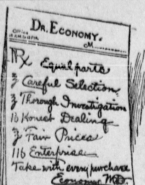 Dr. Economy.
M
Rx Equal parts
Careful Selection
Through Investigation
16 Honest Dealing
Fair Prices
1 lb Enterprise
Take with every purchase
Economy M.D.